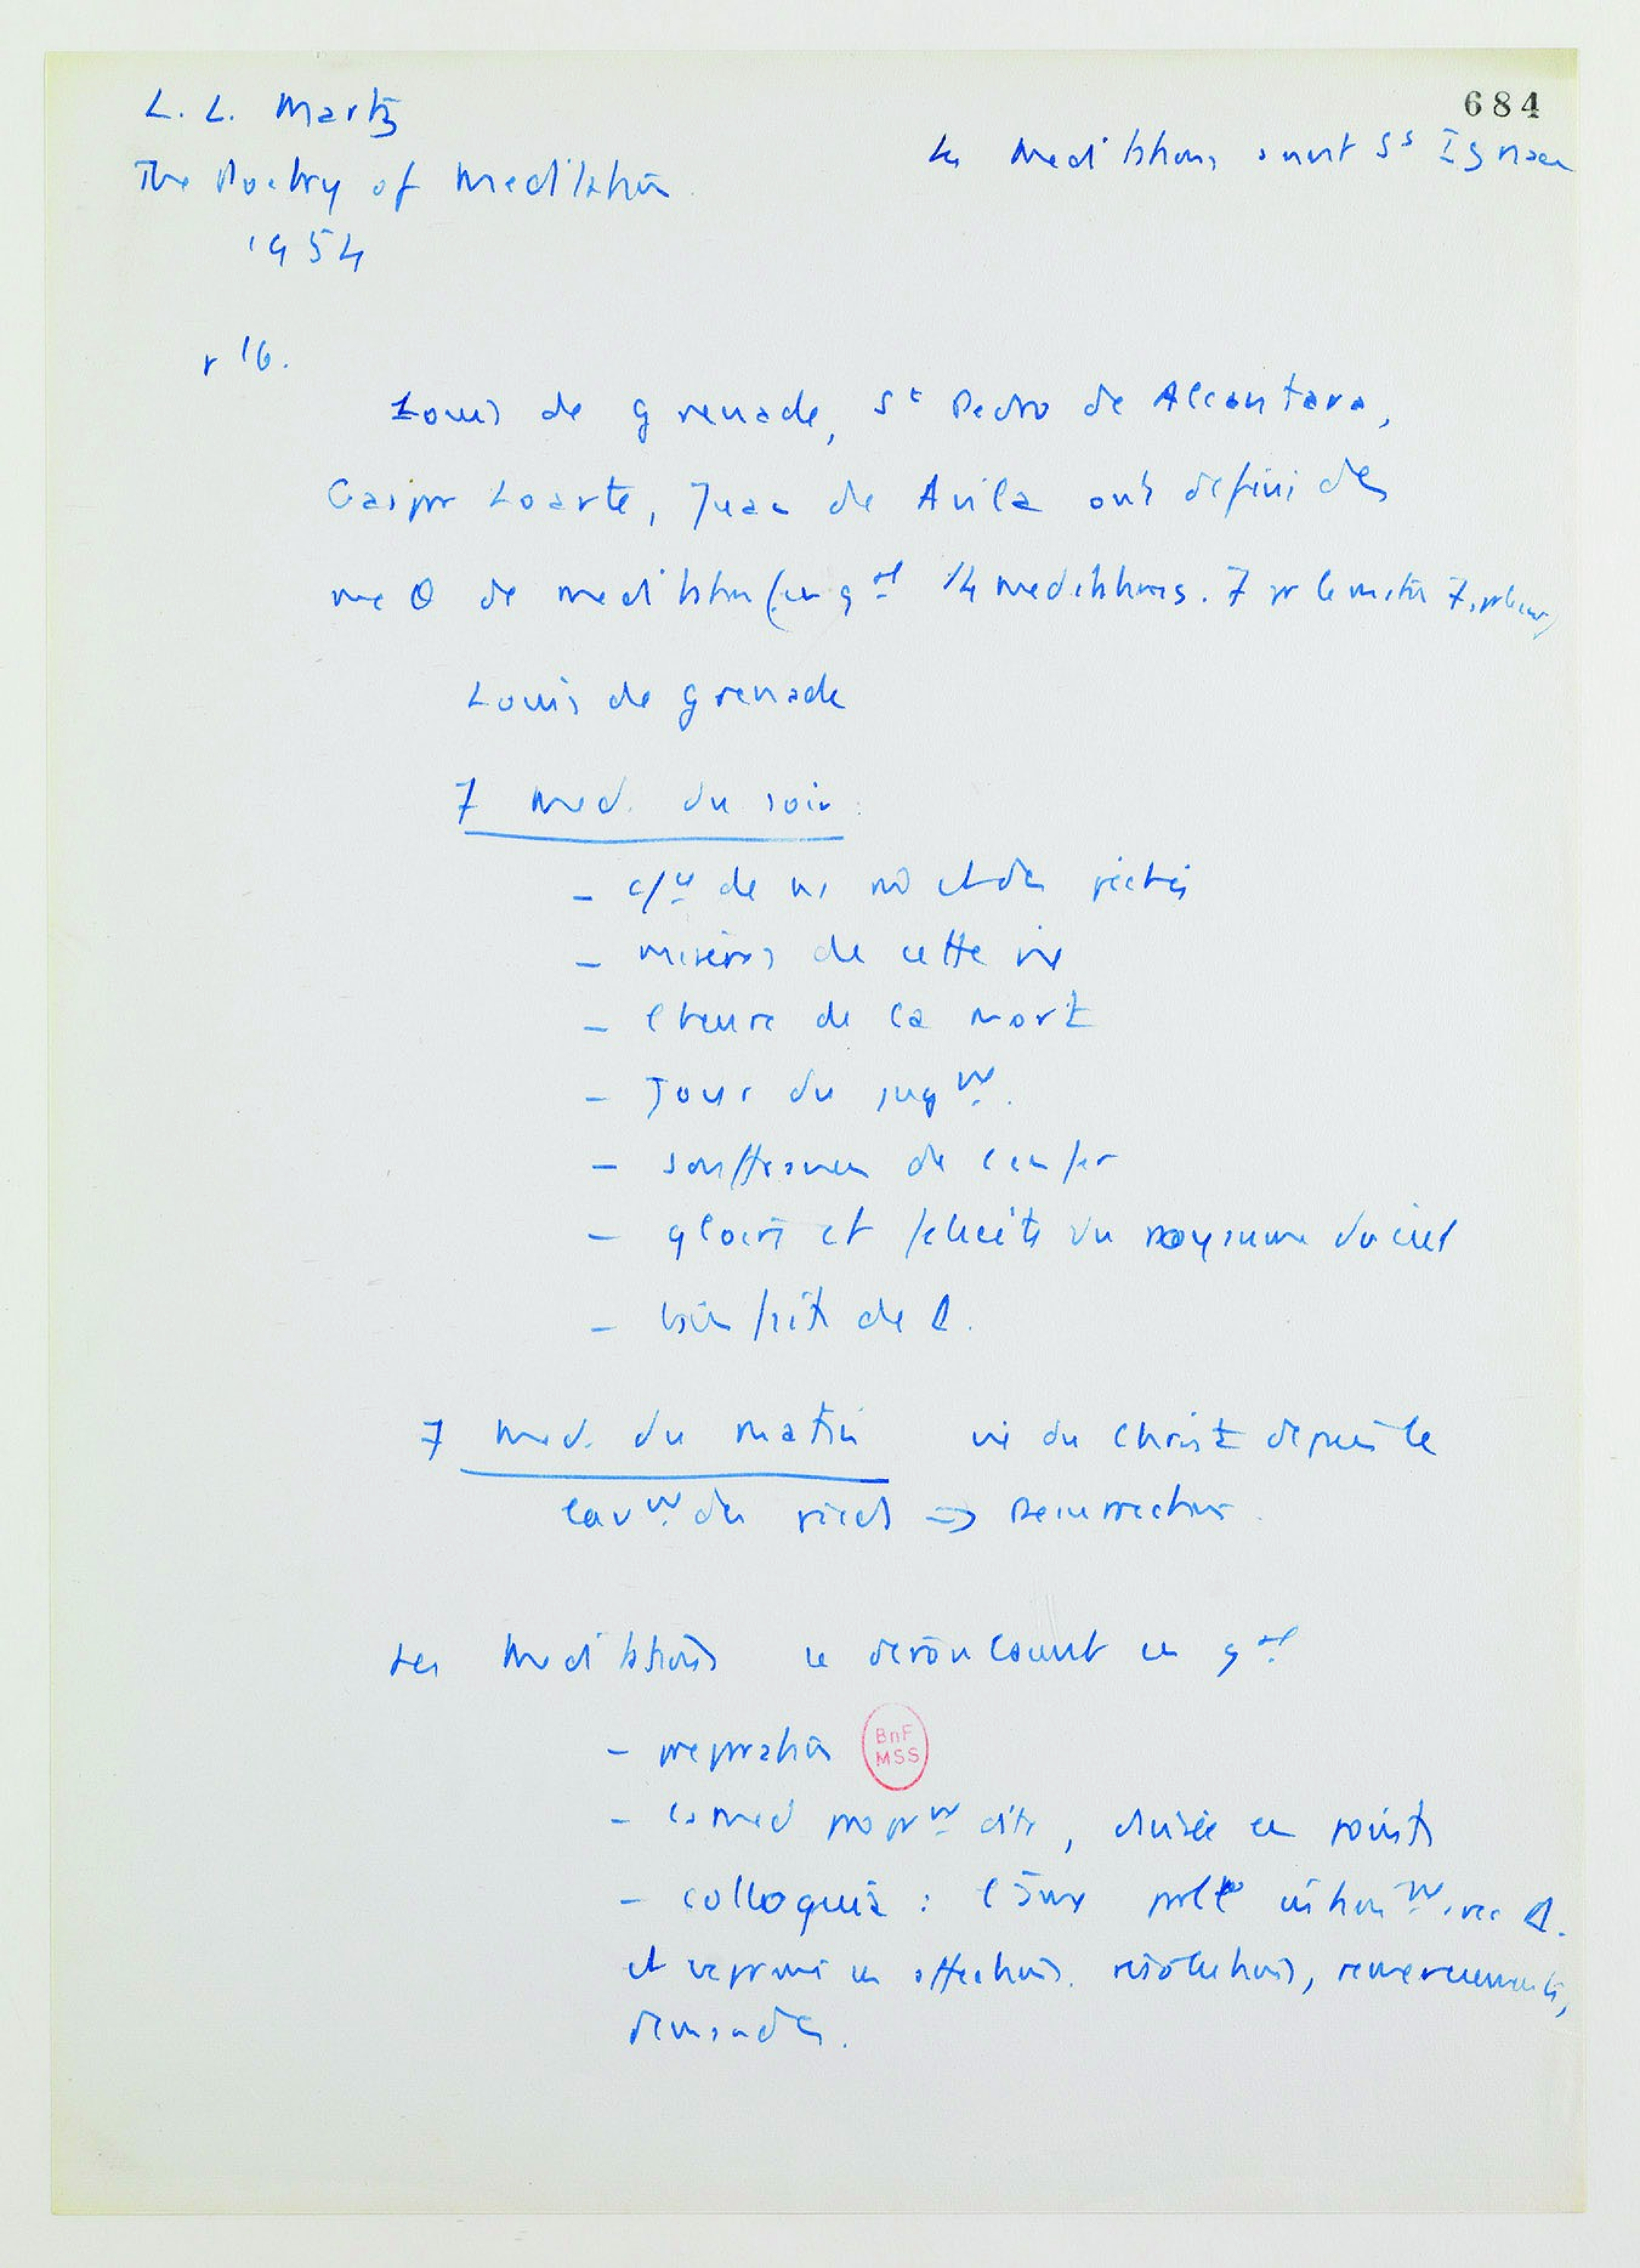 684
L. L. Martz
The Poetry of Meditation
1954
Les Meditations avant St Ignace
p 16.
Louis de Grenade, St Pedro de Alcantara,
Gaspar Loarte, Juan de Avila ont défini des
de meditation (en gal 14 meditations. 7 pr le matin 7 pr le soir)
Louis de Grenade
7 med. du soir :
- de et des péchés
- misères de cette vie
- l'heure de la mort
- Jour du jugt.
- souffrances de l'enfer
- gloire et félicité du royaume du ciel
- bienfaits de D.
7 med. du matin vie du Christ depuis le
lavt des pieds => Resurrection.
Les Meditations se déroulaient en gal
- preparation
BnF
MSS
- la med propt dite, divisée en points
- colloquia : l'âme parle intimt avec D.
et s'exprime en affections, résolutions, remerciements,
demandes.